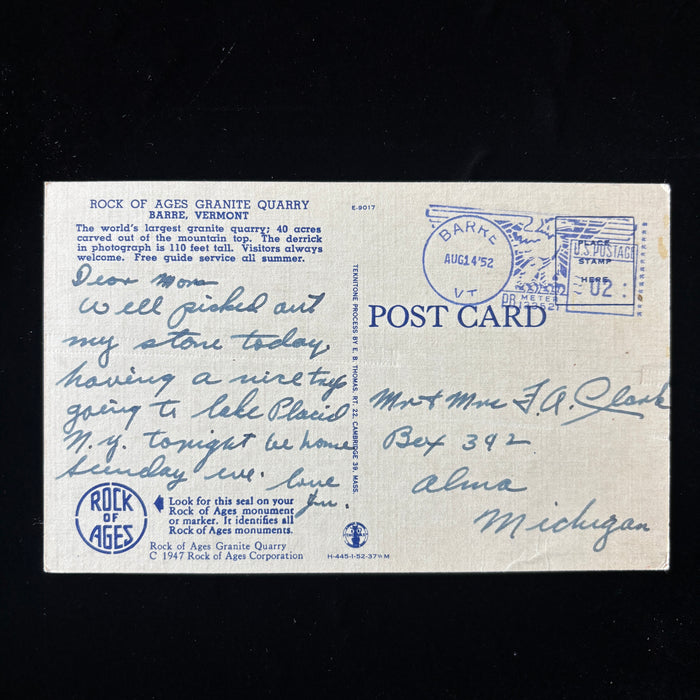 ROCK OF AGES GRANITE QUARRY
BARRE, VERMONT
The world's largest granite quarry; 40 acres
carved out of the mountain top. The derrick
in photograph is 110 feet tall. Visitors always
welcome. Free guide service all summer.
Dear Mom
Well picked out
my stone today.
having a nice trip
going to lake Placid
N.y. tonight be home
Sunday eve. love
ROCK
OF
AGES
Look for this seal on your
Rock of Ages monument
or marker. It identifies all
Rock of Ages monuments.
Rock of Ages Granite Quarry
C 1947 Rock of Ages Corporation
E-9017
TEKNITONE PROCESS BY E. B. THOMAS, RT. 22, CAMBRIDGE 39, MASS.
H-445-1-52-37½M
BARRE
AUG14'52
VT
PLACE
STAMP
HERE
U.S POSTAGE
02
METER
POST CARD
Mr & Mrs F.A. Clark
Box 392
Alma
Michigan